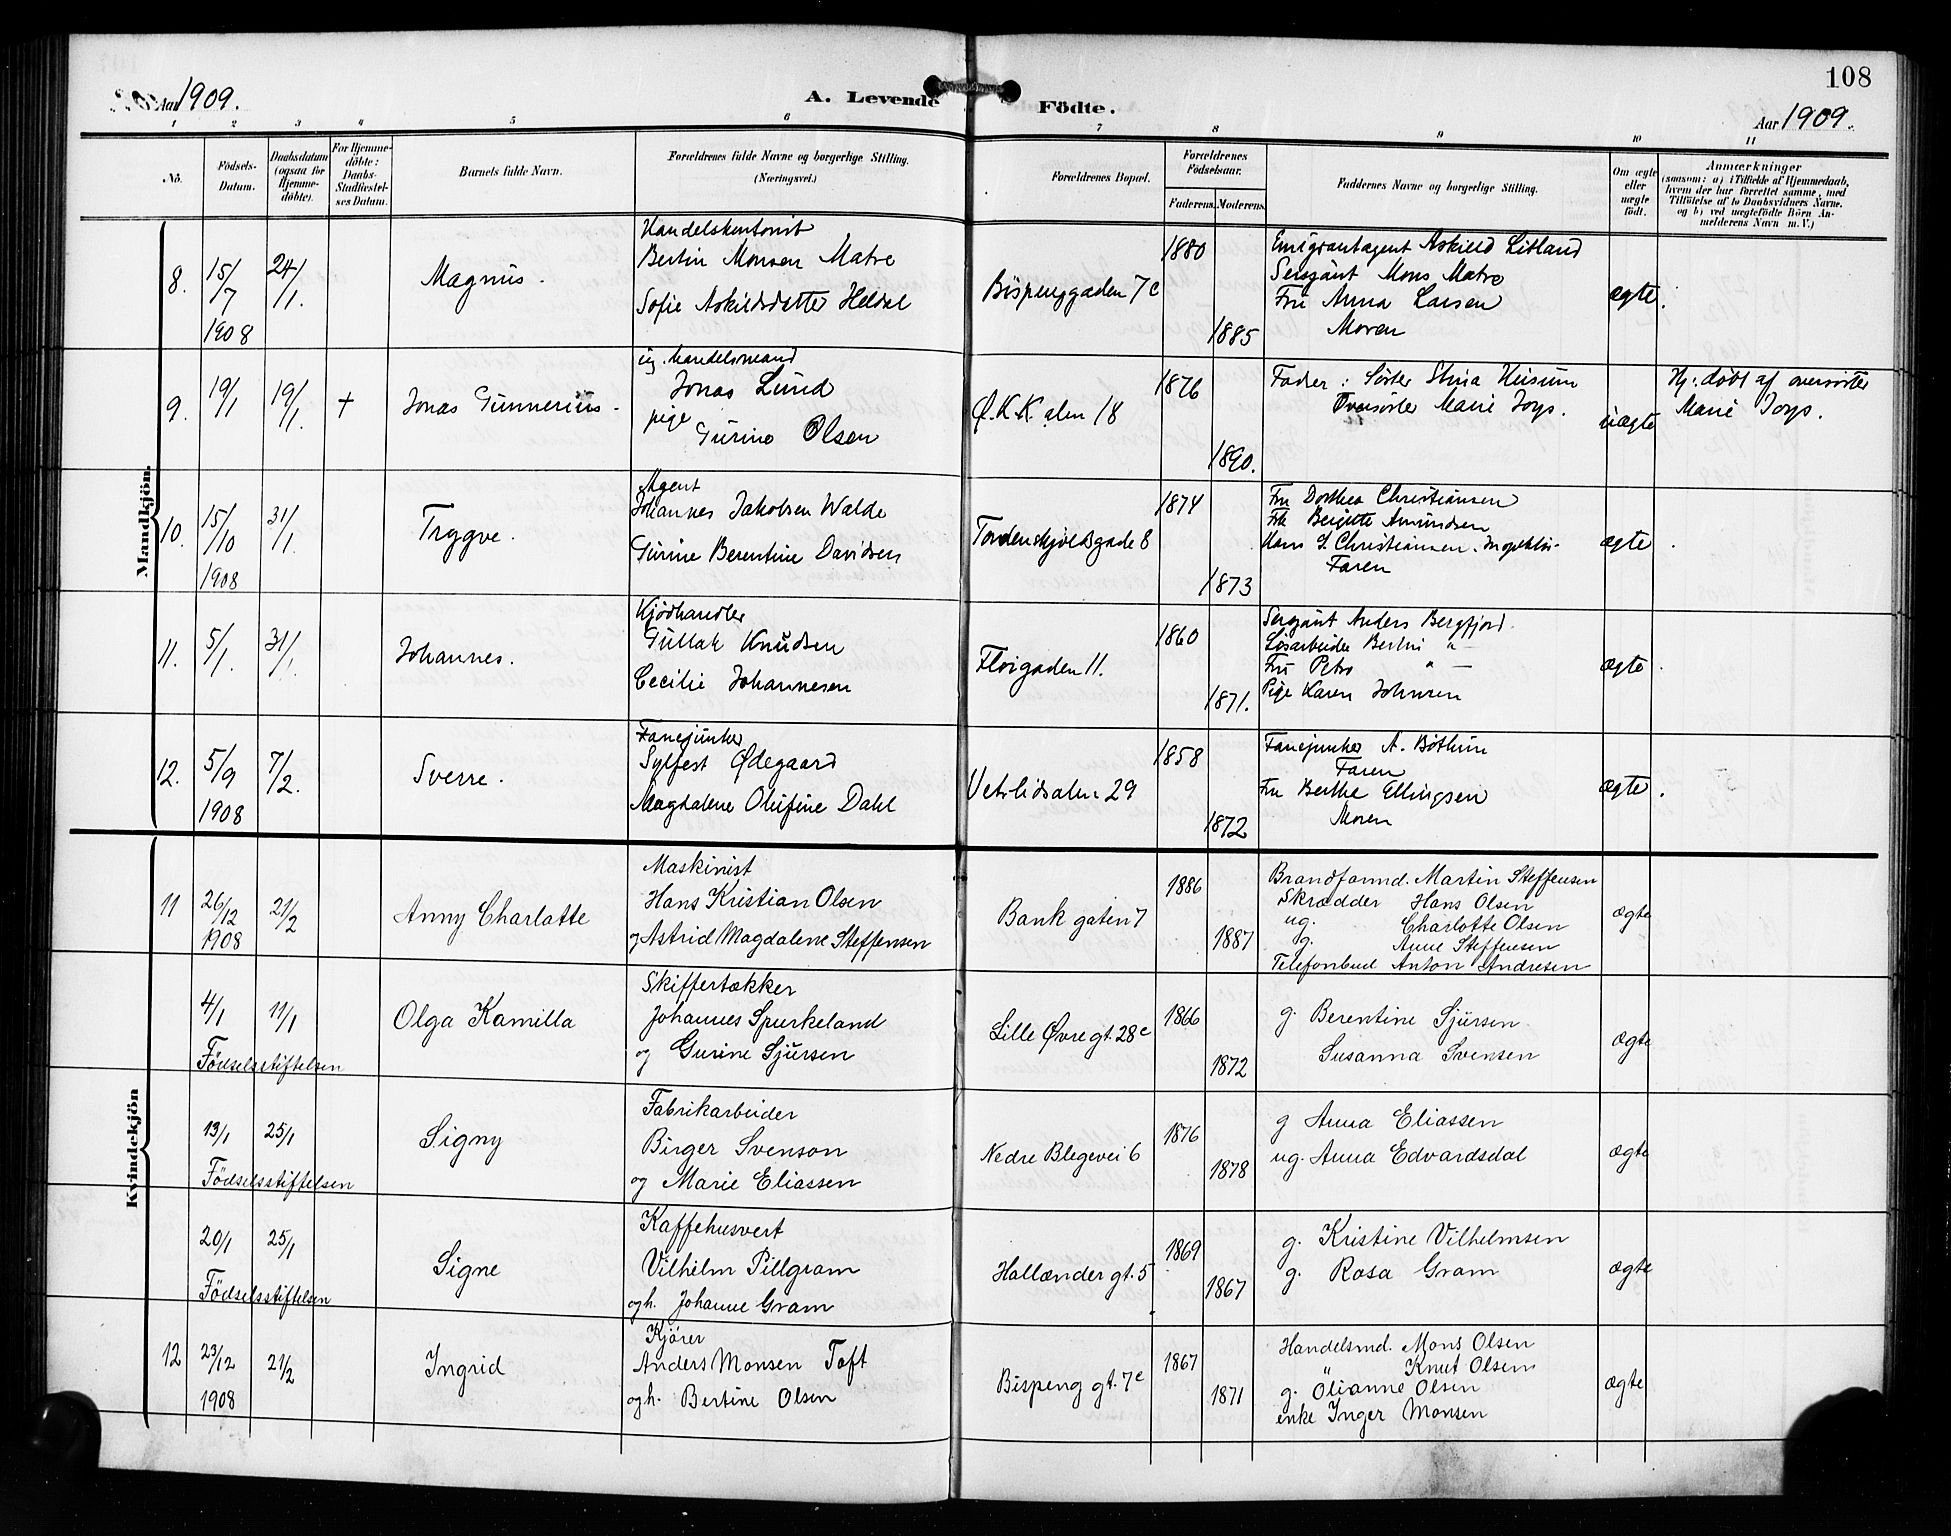 Aar 1909.
A. Levende Födte.
108
Aar 1909.
1 2 3 4 5 6 7 8 9 10 11
No.
Födsels-Datum.
Daabsdatum (ogsaa for Hjemme-döbte).
For Hjemme-döbte: Daabs-Stadfæstel-ses Datum.
Barnets fulde Navn.
Forældrenes fulde Navne og borgerlige Stilling.
(Næringsvei.)
Forældrenes Bopæl.
Forældrenes Födselsaar.
Faderens. Moderens.
Faddernes Navne og borgerlige Stilling.
Om ægte eller uægte födt.
Anmærkninger
(saasom: a) i Tilfælde af Hjemmedaab,
hvem der har forrettet samme, med
Tilföielse af to Daabsvidners Navne.
og b) ved uægtefödte Börn An-
melderens Navn m. V.)
Mandkjön.
8. 15/7 1908 24/1. Magnus.
Handelskontorist
Bertin Monsen Matre
Sofie Askildsdatter Heldal
Bispenggaden 7c
1880
1885
Emigrantagent Askild Litland
Sergiant Mons Matre
Fru Anna Larsen
Moren
ægte.
9. 19/1 19/1. + Jonas Gunnerius.
ug. handelsmand
Jonas Lund
pige
Gurine Olsen
Ø.K.K. alm 18
1876
1890.
Fader: Søster Stina Husum
Oversøster Marie Joys.
uægte
Hj: døbt af oversøster
Marie Joys.
10. 15/10 1908 31/1. Tryggve.
Agent
Johannes Jakobsen Walde
Gurine Berentine Davidsen
Tordenskjoldsgade 8
1874
1873
Fru Dorthea Christiansen
Frk Bergitte Amundsen
Hans S. Christiansen. Inspektør
Faren
ægte.
11. 5/1. 31/1. Johannes.
Kjødhandler
Gullak Knudsen
Cecilie Johannesen
Fløigaden 11.
1860
1871.
Sergiant Anders Bergfjord.
Løsarbeider Bertin " —
Fru Petra " —
Pige Karen Johnsen
ægte.
12. 5/9 1908 7/2. Sverre.
Fanejunker
Sylfest Ødegaard
Magdalene Olufine Dahl
Vetrlidsalm. 29
1858
1872
Fanejunker A. Bøthun
Faren
Fru Berthe Ellingsen
Moren
ægte.
Kvindekjön
11 26/12 1908 21/2 Anny Charlotte
Maskinist
Hans Kristian Olsen
og Astrid Magdalene Steffensen
Bank gaten 7
1886
1887
Brandformd. Martin Steffensen
Skrædder Hans Olsen
ug. Charlotte Olsen
g. Anne Steffensen
Telefonbud Anton Andresen
ægte
4/1 11/1 Olga Kamilla
Fødselsstiftelsen
Skiffertækker
Johannes Spurkeland
og Gurine Sjursen
Lille Øvregt. 28c
1866
1872
g. Berentine Sjursen
Susanna Svensen
ægte
13/1 25/1 Signy
Fødselsstiftelsen
Fabrikarbeider
Birger Svenson
og Marie Eliassen
Nedre Blegevei 6
1876
1878
g Anna Eliassen
ug. Anna Edvardsdal
ægte
20/1 25/1 Signe
Fødselsstiftelsen
Kaffehusvert
Vilhelm Pillgram
og h. Johanne Gram
Hollænder gt. 5
1869
1867
g. Kristine Vilhelmsen
g. Rosa Gram
ægte
12 23/12 1908 21/2 Ingrid
Kjører
Anders Monsen Toft
og h. Bertine Olsen
Bispeng gt. 7c
1867
1871
Handelsmd. Mons Olsen
" Knut Olsen
g. Olianne Olsen
enke Inger Monsen
ægte